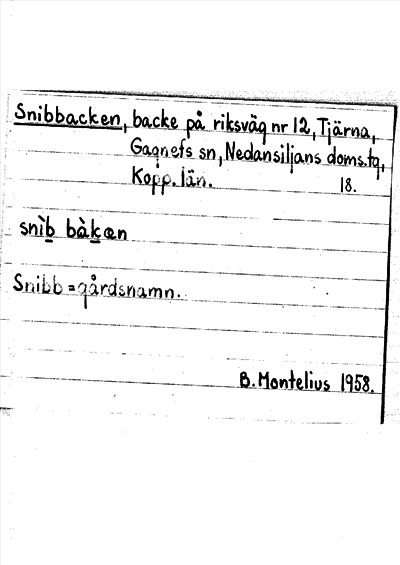 Snibbacken, backe på riksväg nr 12, Tjärna,
Gagnefs sn, Nedansiljans doms.tg,
Kopp. län. 18.
snìb bàkæn
Snibb = gårdsnamn.
B. Montelius 1958.